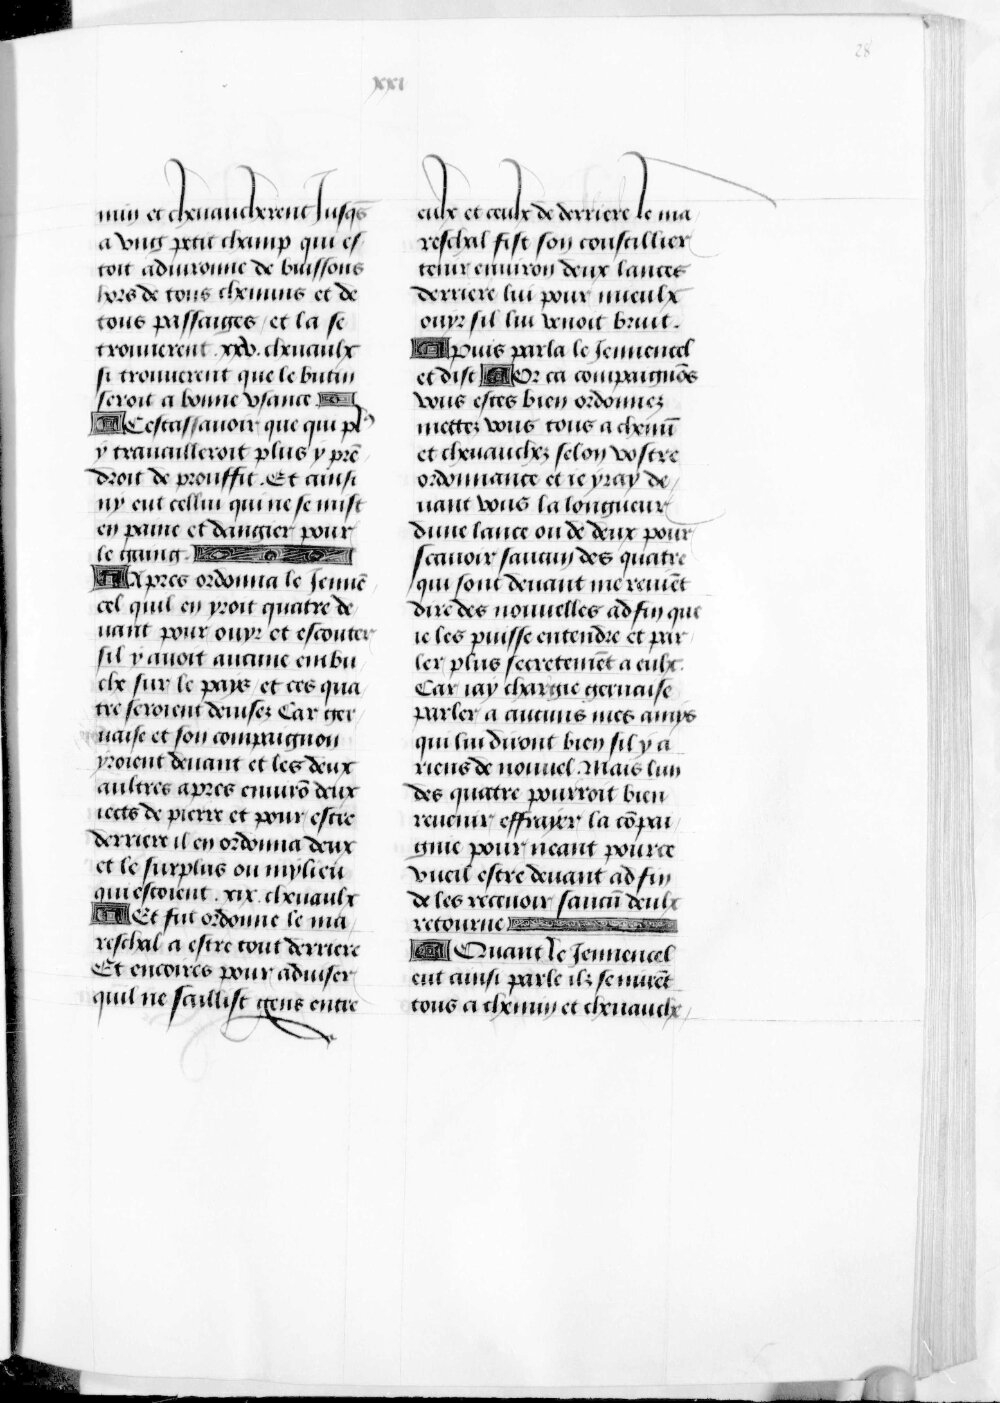 28
xxi
min et cheuaucherent Jusqs̄
a vng petit champ qui es
toit aduironne de buissons
hors de tous chemins et de
tous passaiges / et la se
trouuerent .xxv. cheuaulx
si trouuerent que le butin
seroit a bonne vsance.
Cestassauoir que qui pl9
y trauailleroit plus y prē
droit de prouffit. Et ainsi
ny eut cellui qui ne se mist
en paine et dangier pour
le gaing.
Apres ordonna le Jenuē
cel quil en yroit quatre de
uant pour ouyr et escouter
sil y auoit aucune embu
che sur le pays / et ces qua
tre seroient deuisez Car ger
uaise et son compaignon
yroient deuant et les deux
aultres apres enuirō deux
iects de pierre et pour estre
derriere il en ordonna deux
et le surplus ou mylieu
qui estoient .xix. cheuaulx
Et fut ordonne le ma
reschal a estre tout derriere
Et encoires pour aduiser
quil ne saillist gens entre
eulx et ceulx de derriere le ma
reschal fist son conseillier
tenir enuiron deux lances
derriere lui pour mieulx
ouyr sil lui venoit bruit.
Puis parla le Jennencel
et dist Or ca compaignōs
vous estes bien ordonnez
mettez vous tous a chemī
et cheuauchez selon vostre
ordonnance et ie yray de
uant vous la longueur
dune lance ou de deux pour
scauoir saucun des quatre
qui sont deuant me reuiēt
dire des nouuelles ad fin que
ie les puisse entendre et par
ler plus secretemēt a eulx.
Car iay chargie geruaise
parler a aucuns mes amys
qui lui diront bien sil y a
riens de nouuel. Mais lun
des quatre pourroit bien
reuenir effrayer la cōpai
gnie pour neant pource
vueil estre deuant ad fin
de les receuoir saucū deulx
retourne
Quant le Jennencel
eut ainsi parle ilz se mirēt
tous a chemin et cheuauche